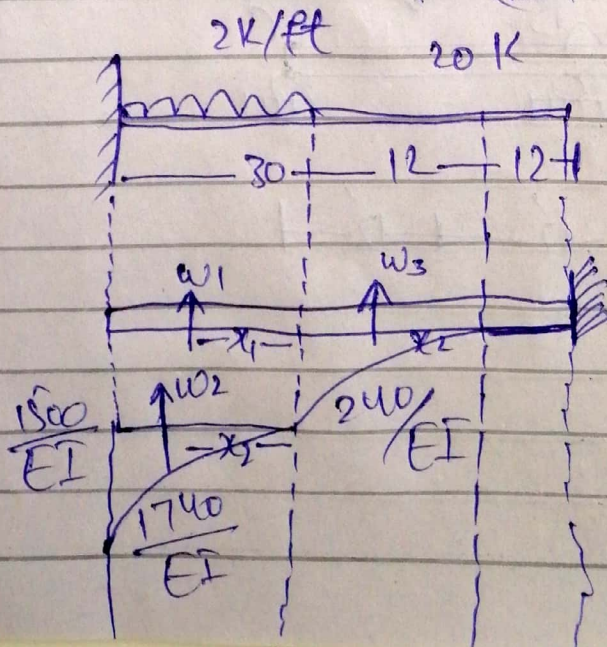 2K/ft
20 K
30 12 12
w1
w3
x1
x2
w2
1500/EI
x2
240/EI
1740/EI